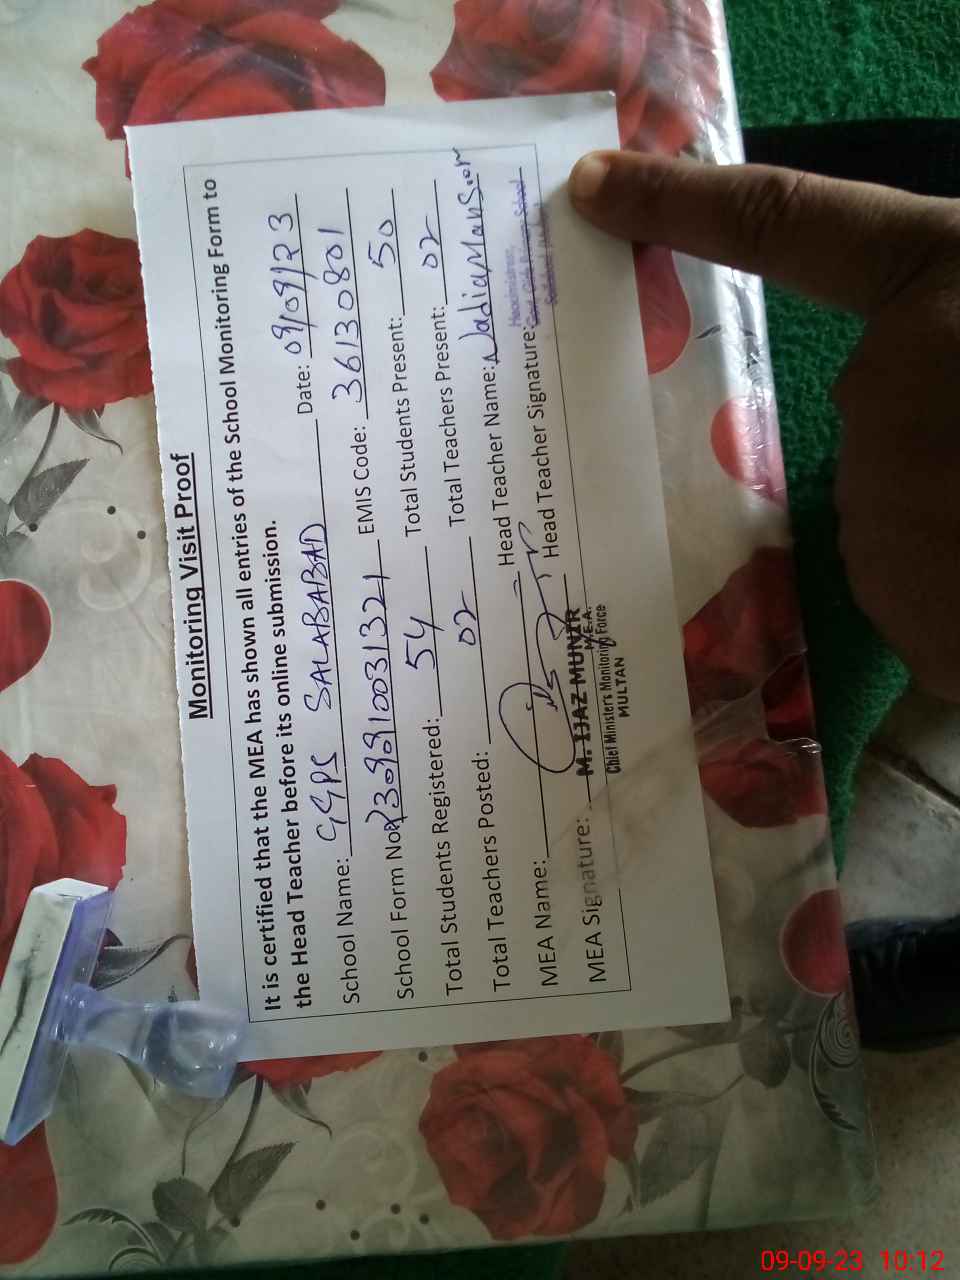 Monitoring Visit Proof
It is certified that the MEA has shown all entries of the School Monitoring Form to
the Head Teacher before its online submission.
School Name: GGPS SALABABAD Date: 09/09/23
School Form No: 23090910031321 EMIS Code: 36130801
Total Students Registered: 54 Total Students Present: 50
Total Teachers Posted: 02 Total Teachers Present: 02
MEA Name: Head Teacher Name: Nadia Mansoor
MEA Signature: Head Teacher Signature:
M. IJAZ MUNIR
M.E.A.
Chief Minister's Monitoring Force
MULTAN
Headmistress
Govt. Girls Primary School
09-09-23 10:12